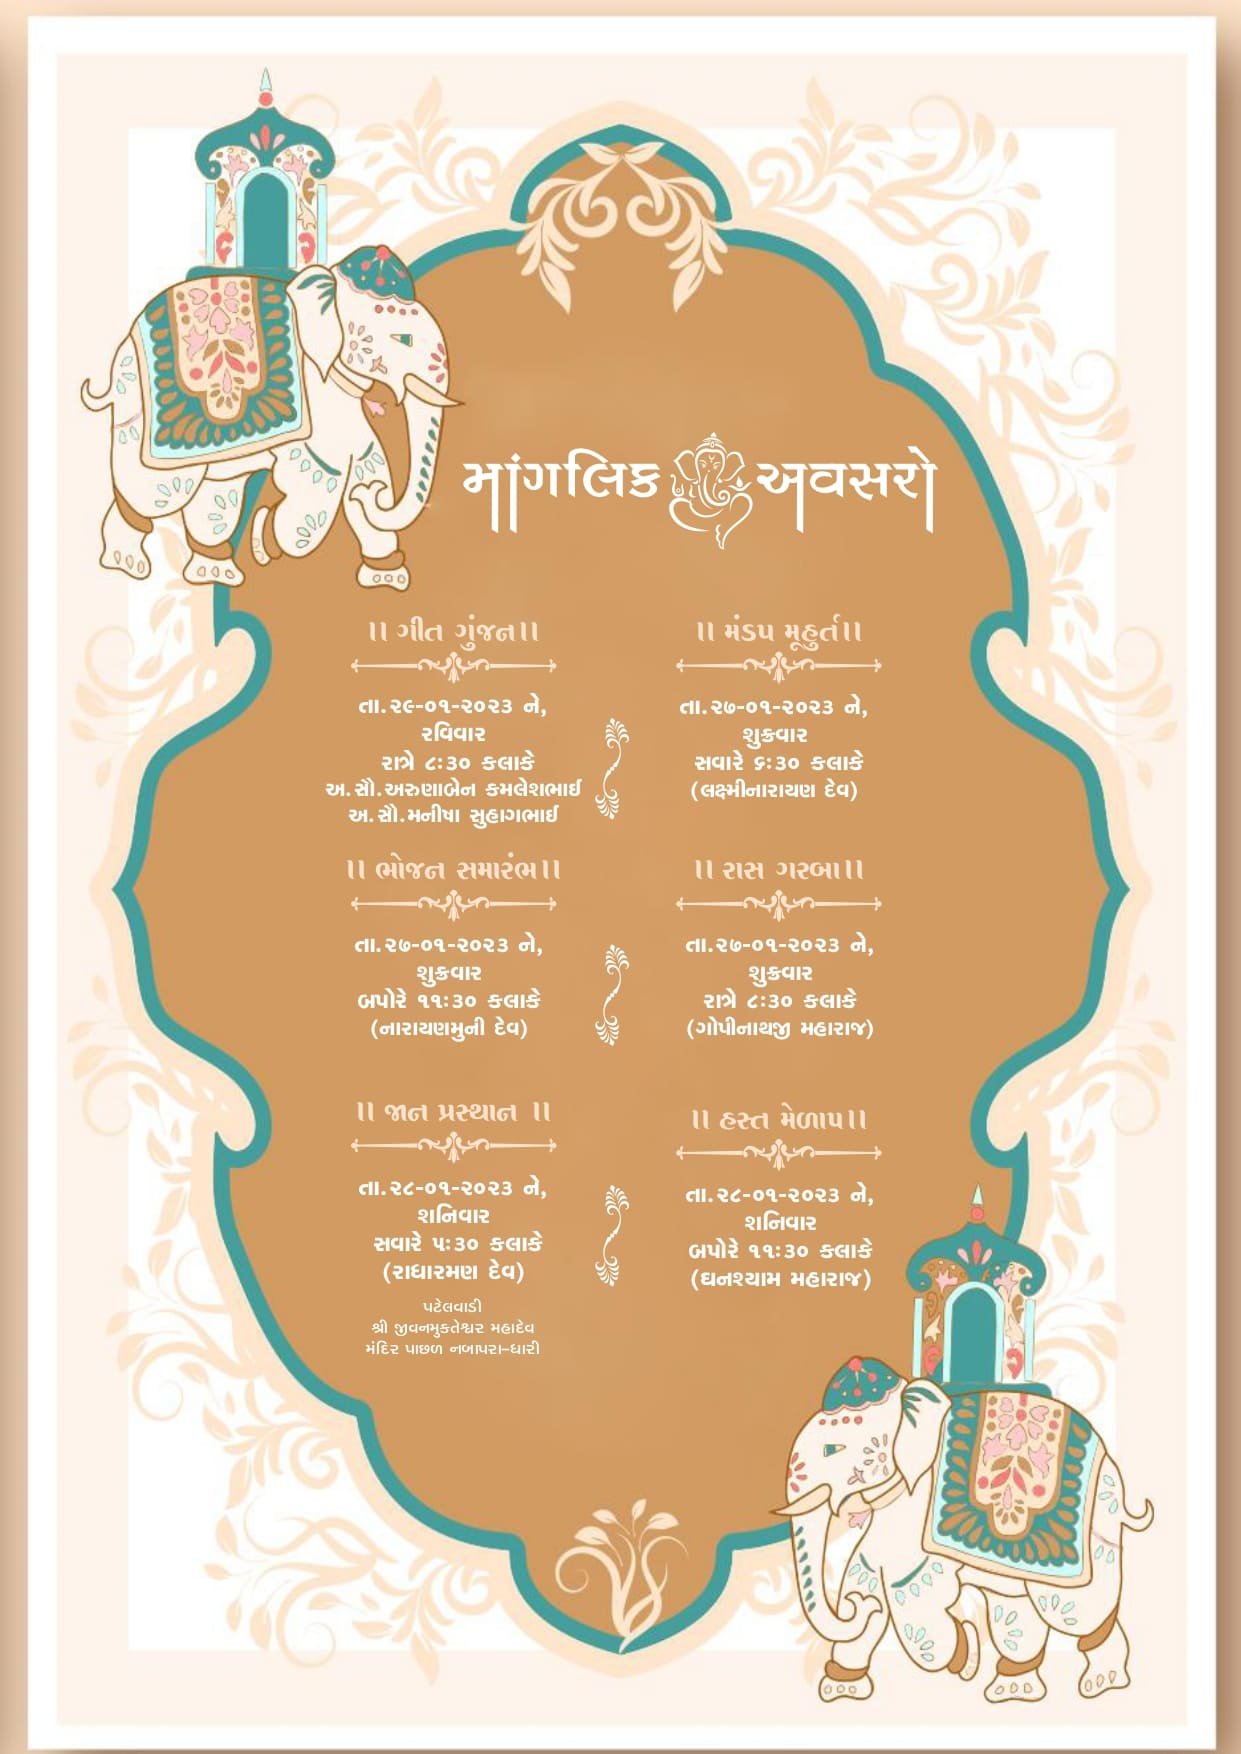 માંગલિક અવસરો
।। ગીત ગુંજન।।
તા.૨૯-૦૧-૨૦૨૩ ને,
રવિવાર
રાત્રે ૮:૩૦ કલાકે
અ.સૌ.અરુણાબેન કમલેશભાઈ
અ.સૌ.મનીષા સુહાગભાઈ
।। મંડપ મૂહુર્ત।।
તા.૨૭-૦૧-૨૦૨૩ ને,
શુક્રવાર
સવારે ૬:૩૦ કલાકે
(લક્ષ્મીનારાયણ દેવ)
।। ભોજન સમારંભ।।
તા.૨૭-૦૧-૨૦૨૩ ને,
શુક્રવાર
બપોરે ૧૧:૩૦ કલાકે
(નારાયણમુની દેવ)
।। રાસ ગરબા।।
તા.૨૭-૦૧-૨૦૨૩ ને,
શુક્રવાર
રાત્રે ૮:૩૦ કલાકે
(ગોપીનાથજી મહારાજ)
।। જાન પ્રસ્થાન ।।
તા.૨૮-૦૧-૨૦૨૩ ને,
શનિવાર
સવારે ૫:૩૦ કલાકે
(રાધારમણ દેવ)
પટેલવાડી
શ્રી જીવનમુક્તેશ્વર મહાદેવ
મંદિર પાછળ નબાપરા-ધારી
।। હસ્ત મેળાપ।।
તા.૨૮-૦૧-૨૦૨૩ ને,
શનિવાર
બપોરે ૧૧:૩૦ કલાકે
(ઘનશ્યામ મહારાજ)